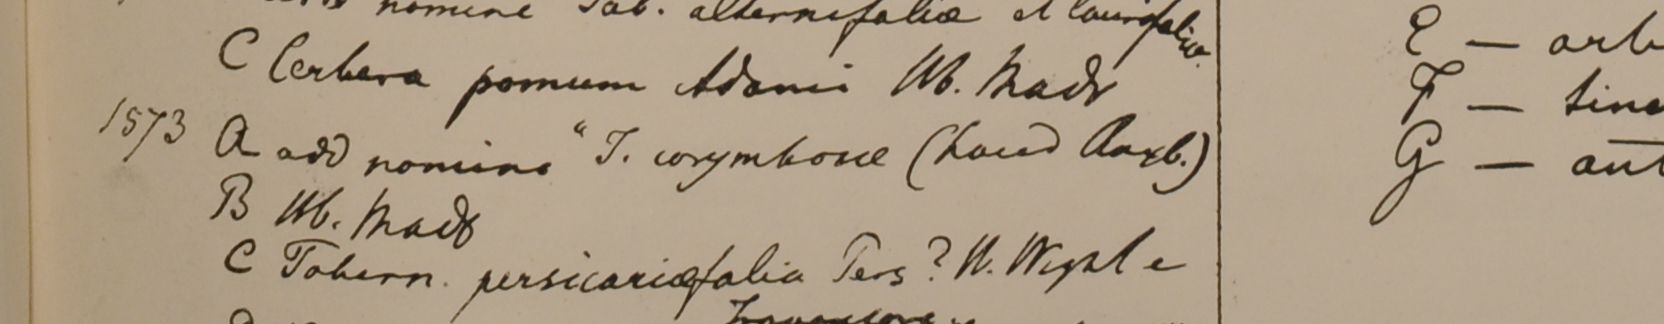 nomine Tab. alternifoliæ et laurifoliæ.
C Cerbera pomum Adami Hb. Madr
1573 A add nomine "T. corymbosæ (haud Roxb.)
B Hb. Madr
C Tabern. persicariæfolia Pers? H. Wight e
E — arb
F —
G —